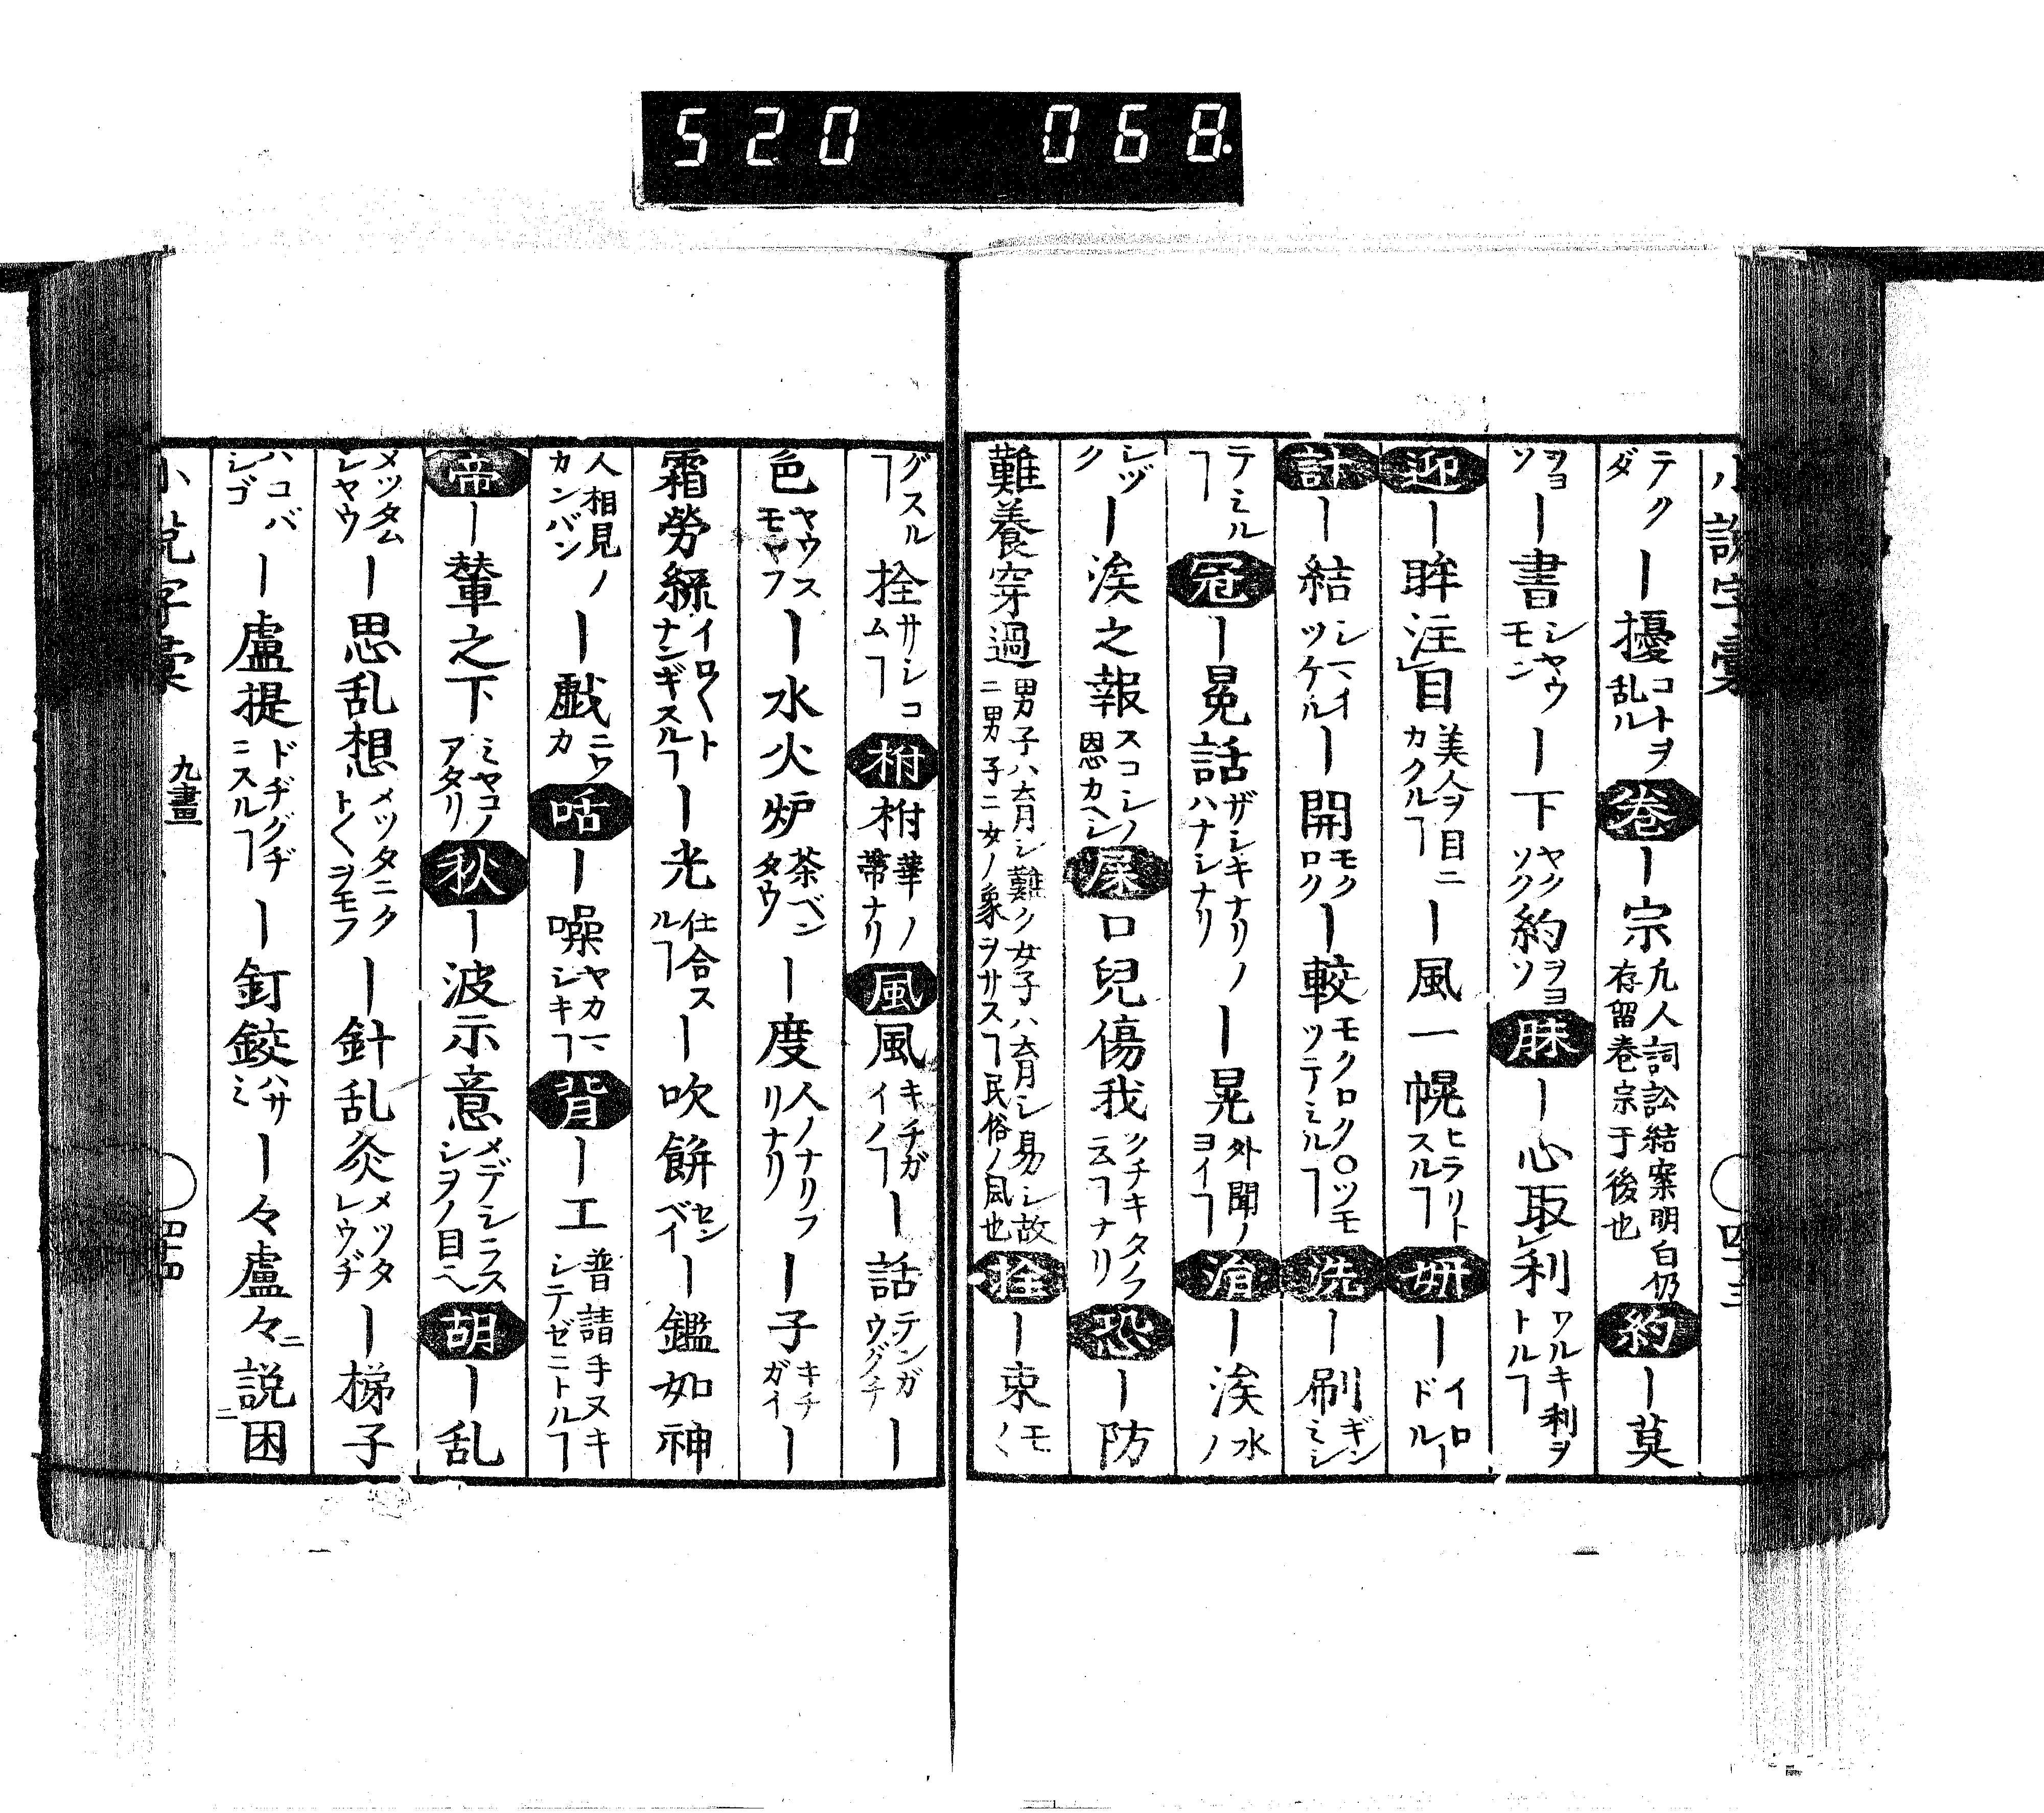 520 068.
小説字彙 四十三
テクダ ー擾コトヲ乱ル 巻ー宗凡人詞訟結案明白仍存留巻宗于後也 約ー莫
ヲヨソ ー書シヤウモン ー下ヤクソク 約ヲヨソ 脒ー心取利ワルキ利ヲトルヿ
迎ー眸注目美人ヲ目ニカクルヿ ー風一幌ヒラリトスルヿ 妍ーイロドル
計ー結シマイツケル ー開モクロク ー較モクロク〇ツモツテミルヿ 洗ー刷ギンミシ
テミルヿ 冠ー冕話ザシキナリノハナシナリ ー晃外聞ノヨイヿ 涓ー涘水ノ
シヅク ー涘之報スコシノ恩カヘシ 屎口兒傷我クチキタノフ云フナリ 恐ー防
難養穿過男子ハ育シ難ク女子ハ育シ易シ故ニ男子ニ女ノ象ヲサスヿ民俗ノ風也 拴ー束モノヽ
グスルヿ 拴サシコムヿ 柎柎華ノ蒂ナリ 風風キチガイノヿ ー話テンガウグチ ー
色ヤウスモヤフ ー水火炉茶ベンタウ ー度人ノナリフリナリ ー子キチガイ ー
霜勞縲イロ〱トナンギスルヿ ー光仕合スルヿ ー吹餅センベイ ー鑑如神
人相見ノカンバン ー戯ニワカ 咶ー噪ヤカマシキヿ 背ー工普請手ヌキシテゼニトルヿ
帝ー輦之下ミヤコノアタリ 秋ー波示意メデシラスシヲノ目ヘ 胡ー乱
メツタムシヤウ ー思乱想メツタニクト〱ヲモフ ー針乱灸メツタレウヂ ー梯子
ハコバシゴ ー盧提ドヂグヂニスルヿ ー釘鉸ハサミ ー々盧々ニ説困ニ
小説字彙 九畫 四十四